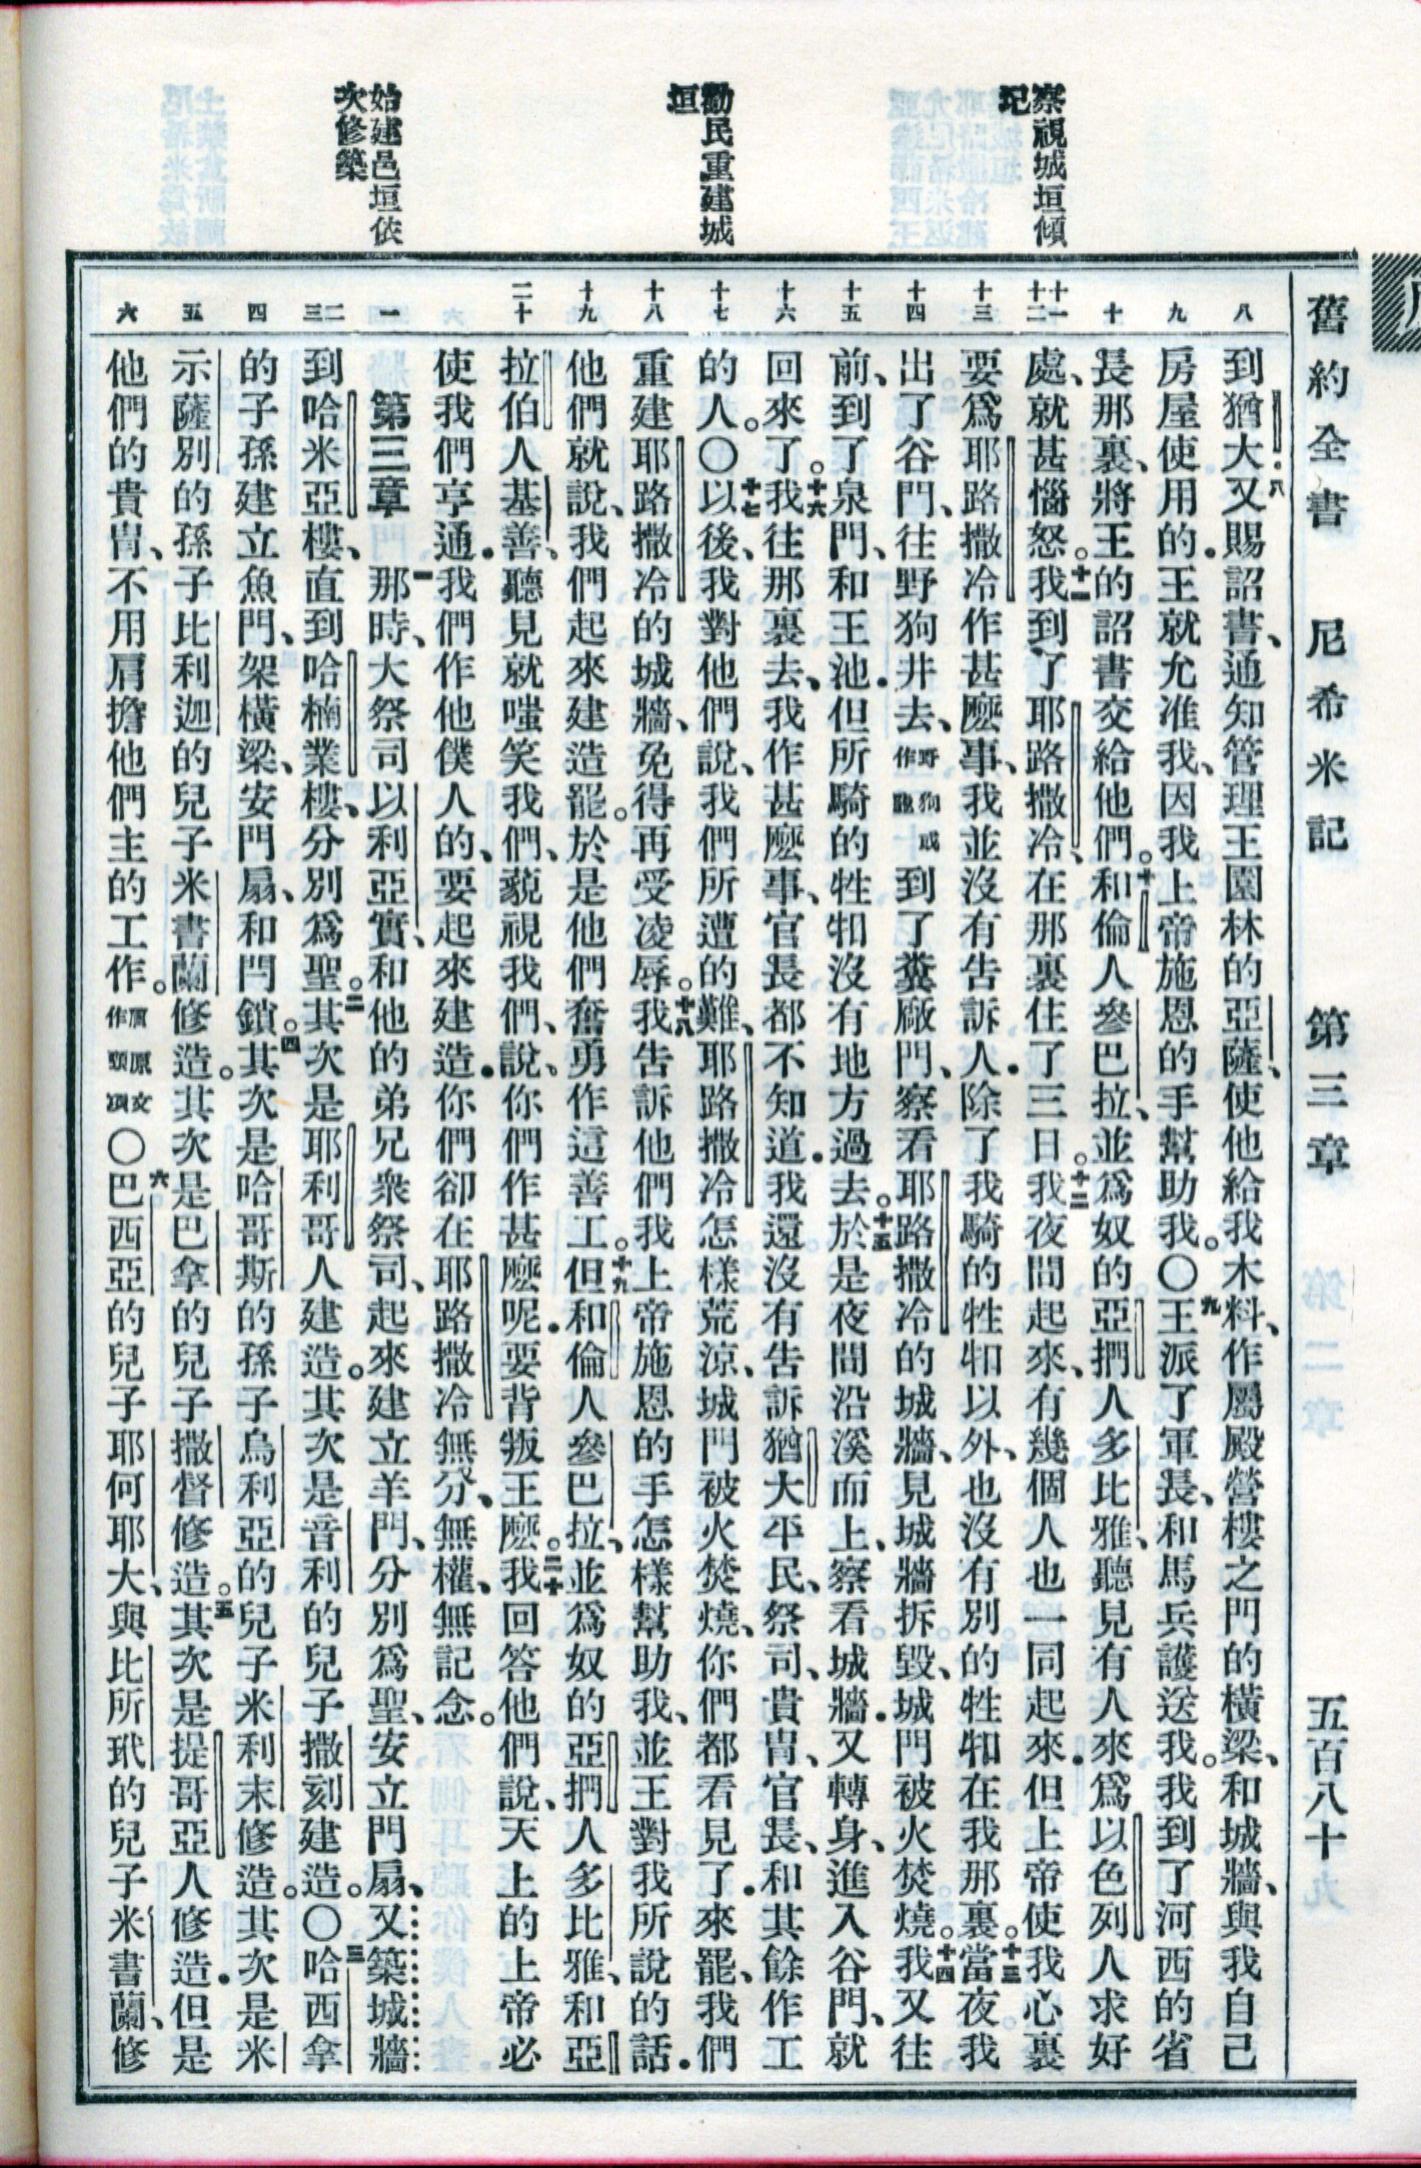 舊約全書 尼希米記 第三章 五百八十
察視城垣傾圮
勸民重建城垣
始建邑垣依次修築
八
九
十
十一 十二
十三
十四
十五
十六
十七
十八
十九
二十
一
二 三
四
五
六
到猶大、八又賜詔書、通知管理王園林的亞薩、使他給我木料、作屬殿營樓之門的橫梁、和城牆、與我自己
房屋使用的．王就允准我、因我上帝施恩的手幫助我。〇九王派了軍長、和馬兵護送我。我到了河西的省
長那裏、將王的詔書交給他們。十和倫人參巴拉、並爲奴的亞捫人多比雅、聽見有人來爲以色列人求好
處、就甚惱怒。十一我到了耶路撒冷、在那裏住了三日。十二我夜間起來、有幾個人也一同起來．但上帝使我心裏
要爲耶路撒冷作甚麼事、我並沒有告訴人．除了我騎的牲口以外、也沒有別的牲口在我那裏。十三當夜我
出了谷門、往野狗井去、野狗或作龍到了糞厰門、察看耶路撒冷的城牆、見城牆拆毀、城門被火焚燒。十四我又往
前、到了泉門、和王池．但所騎的牲口沒有地方過去。十五於是夜間沿溪而上、察看城牆．又轉身、進入谷門、就
回來了。十六我往那裏去、我作甚麼事、官長都不知道．我還沒有告訴猶大平民、祭司、貴冑、官長、和其餘作工
的人。〇十七以後、我對他們說、我們所遭的難、耶路撒冷怎樣荒涼、城門被火焚燒、你們都看見了．來罷、我們
重建耶路撒冷的城牆、免得再受凌辱。十八我告訴他們我上帝施恩的手怎樣幫助我、並王對我所說的話．
他們就說、我們起來建造罷。於是他們奮勇作這善工。十九但和倫人參巴拉、並爲奴的亞捫人多比雅、和亞
拉伯人基善、聽見就嗤笑我們、藐視我們、說、你們作甚麼呢．要背叛王麼。二十我回答他們說、天上的上帝必
使我們亨通．我們作他僕人的、要起來建造．你們卻在耶路撒冷無分、無權、無記念。
第三章 一那時、大祭司以利亞實、和他的弟兄衆祭司、起來建立羊門、分別爲聖、安立門扇、又築城牆
到哈米亞樓、直到哈楠業樓、分別爲聖。二其次是耶利哥人建造。其次是音利的兒子撒刻建造。〇三哈西拿
的子孫建立魚門、架橫梁、安門扇、和閂鎖。四其次是哈哥斯的孫子烏利亞的兒子米利末修造。其次是米
示薩別的孫子比利迦的兒子米書蘭修造。其次是巴拿的兒子撒督修造。五其次是提哥亞人修造．但是
他們的貴冑、不用肩擔他們主的工作。肩原文作頸項〇六巴西亞的兒子耶何耶大、與比所玳的兒子米書蘭、修